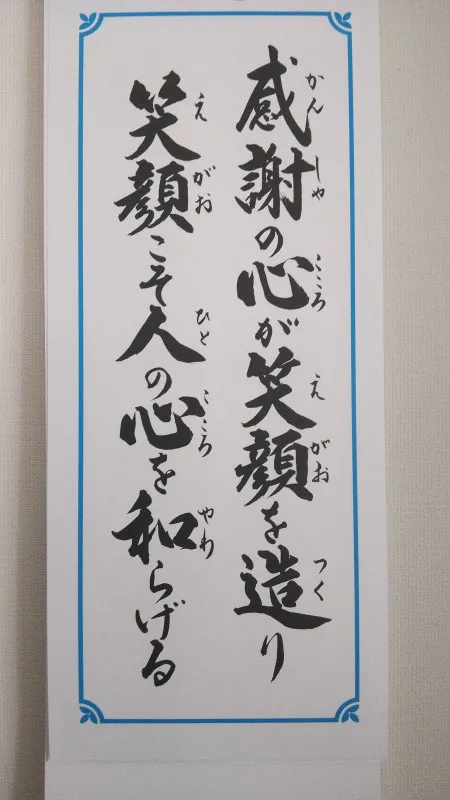 感謝の心が笑顔を造り
かんしゃ こころ えがお つく
笑顔こそ人の心を和らげる
えがお ひと こころ やわ